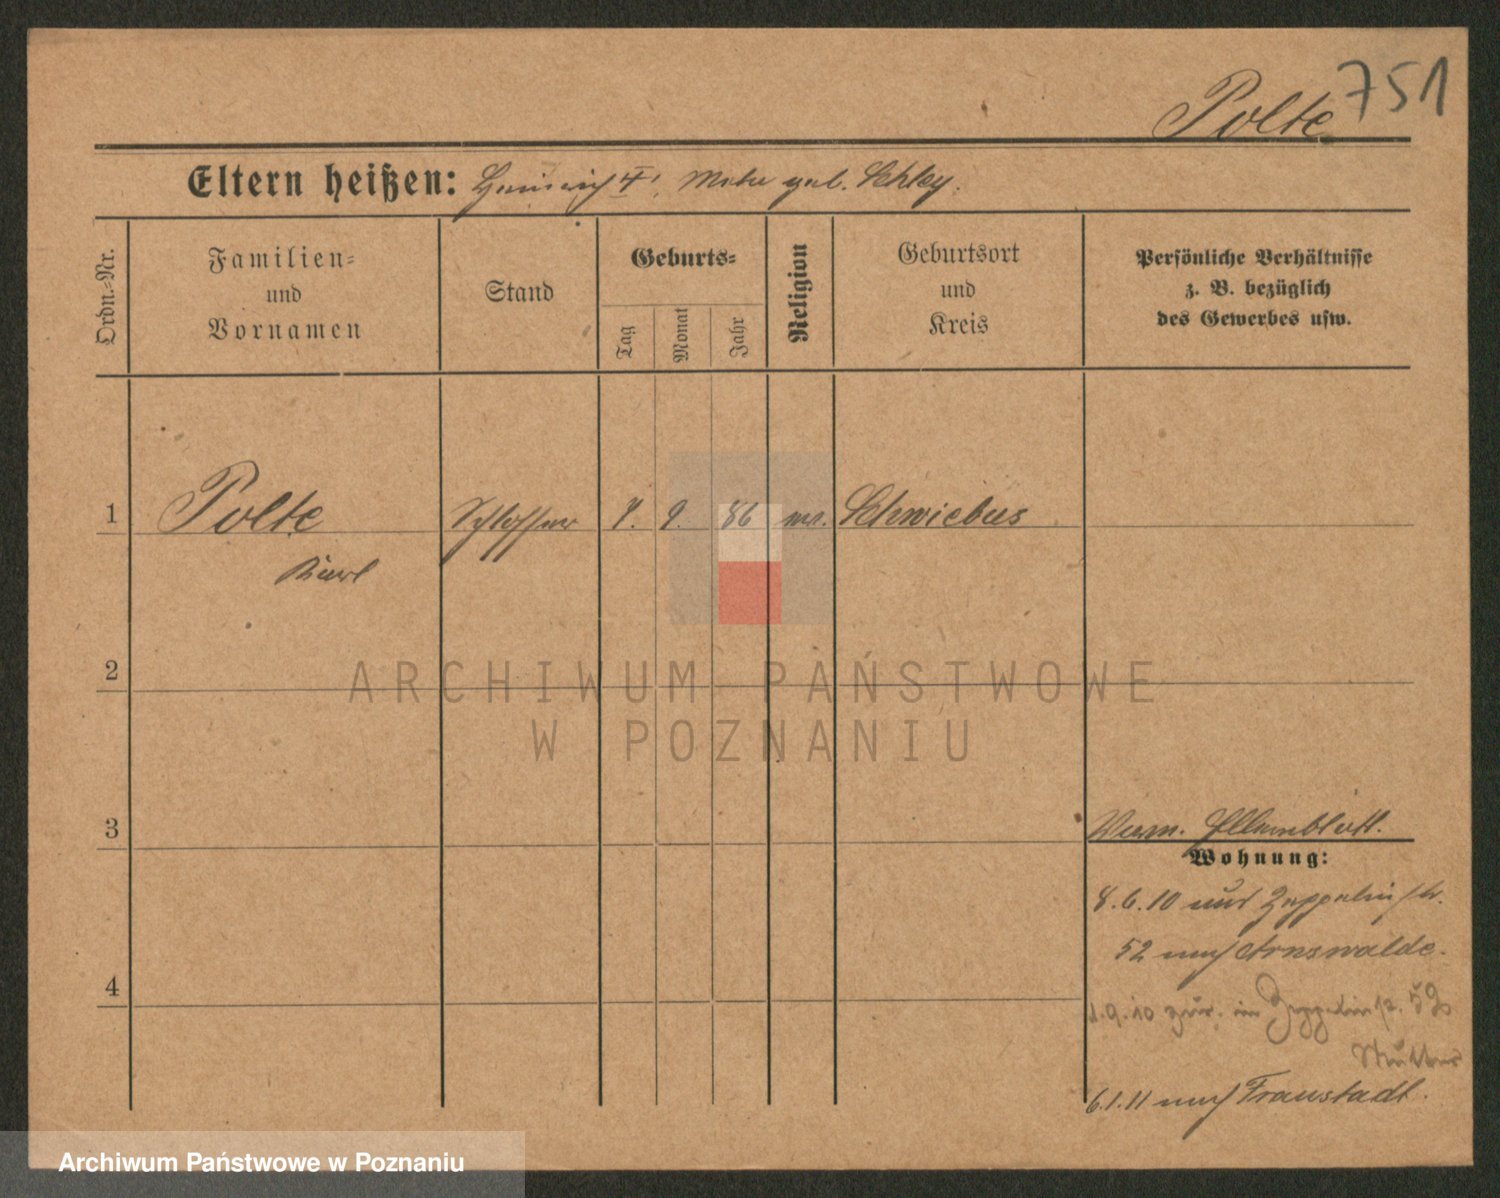 751
Polte
Eltern heißen: Heinrich †, Mutter geb. Schley.
Ordn.-Nr.
Familien-
und
Vornamen
Stand
Geburts-
Tag
Monat
Jahr
Religion
Geburtsort
und
Kreis
Persönliche Verhältnisse
z. B. bezüglich
des Gewerbes usw.
1 Polte Schlosser 7. 9. 86 ev. Schwiebus
Karl
2
3
4
Elternblatt.
Wohnung:
8.6.10 aus Zeppelinstr.
52 nach Arnswalde.
1.9.10 zur. in Zeppelinstr. 52
Mutter
6.1.11 nach Fraustadt.
ARCHIWUM PAŃSTWOWE
W POZNANIU
Archiwum Państwowe w Poznaniu